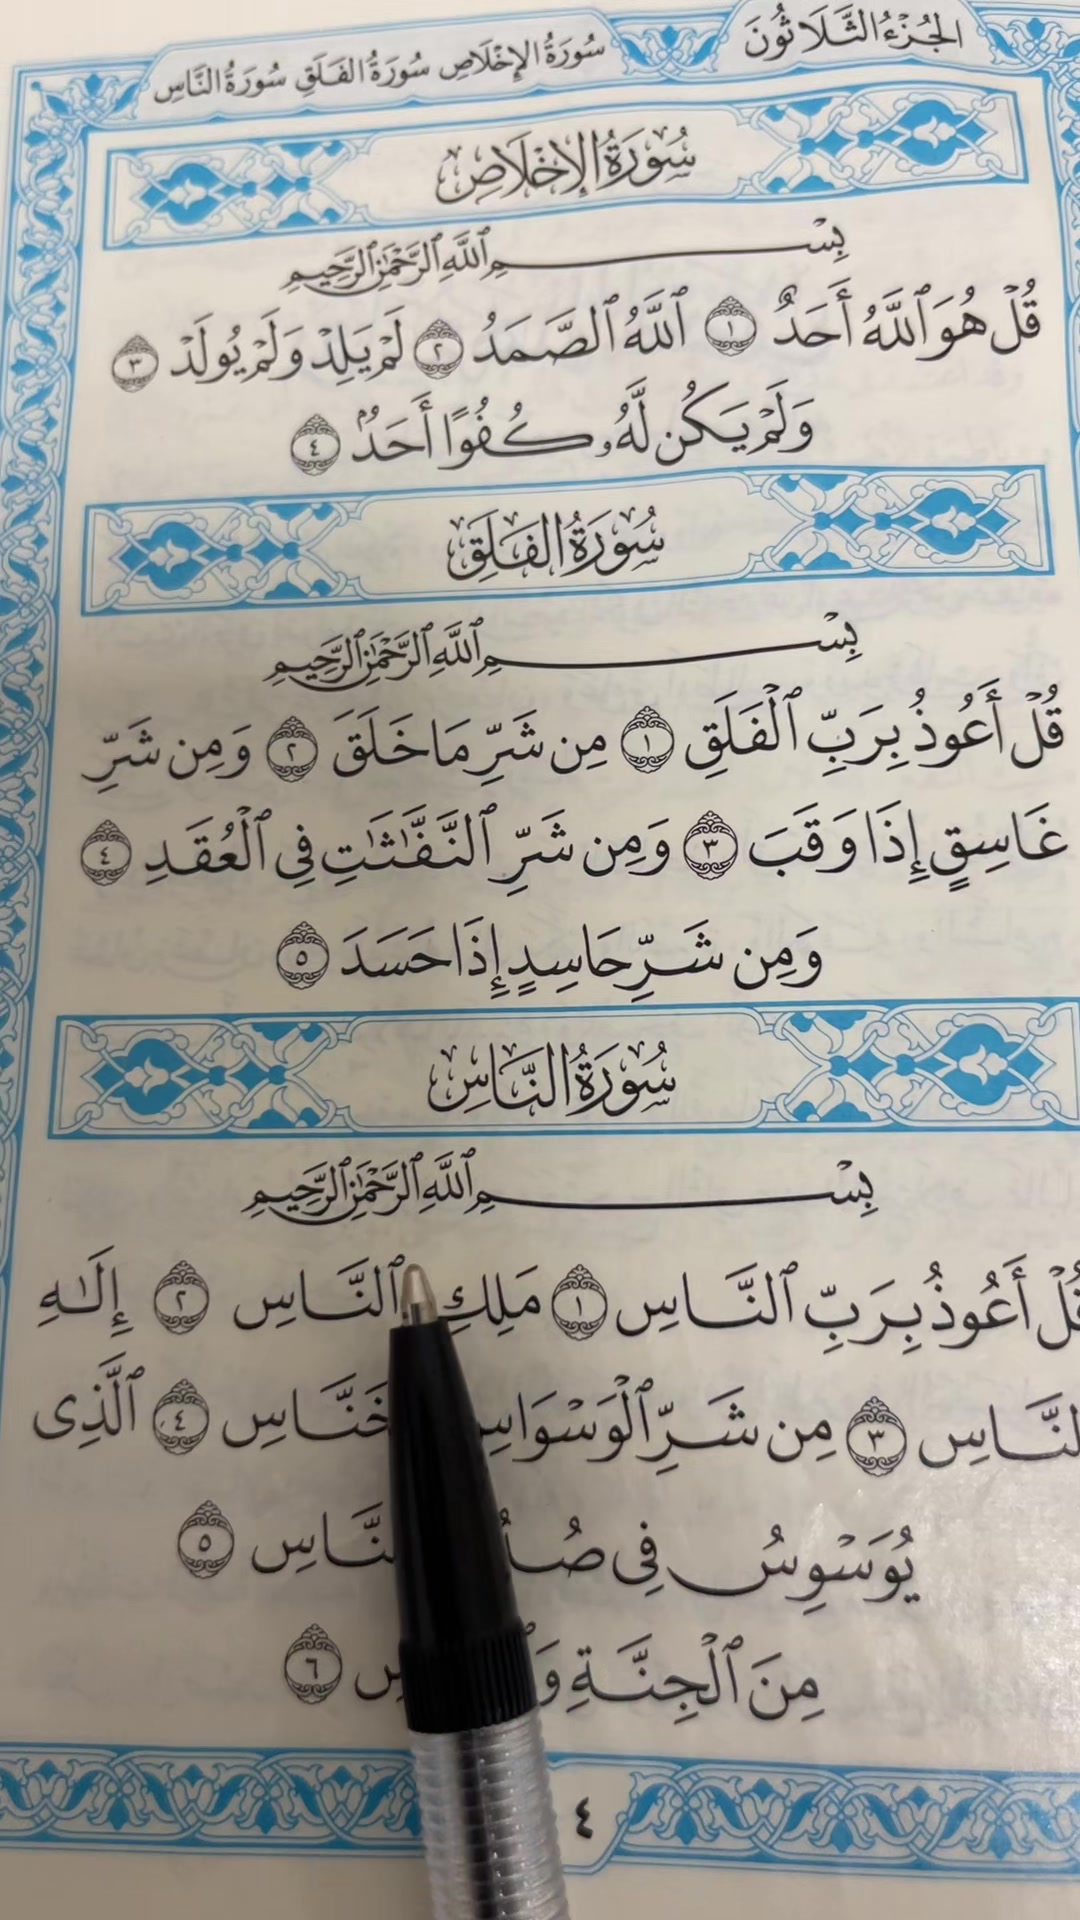 الجُزْءُ الثَّلَاثُونَ
سُورَةُ الإِخْلَاصِ سُورَةُ الفَلَقِ سُورَةُ النَّاسِ
سُورَةُ الإِخْلَاصِ
بِسْمِ ٱللَّهِ ٱلرَّحْمَٰنِ ٱلرَّحِيمِ
قُلْ هُوَ ٱللَّهُ أَحَدٌ ١ ٱللَّهُ ٱلصَّمَدُ ٢ لَمْ يَلِدْ وَلَمْ يُولَدْ ٣
وَلَمْ يَكُن لَّهُۥ كُفُوًا أَحَدٌۢ ٤
سُورَةُ الفَلَقِ
بِسْمِ ٱللَّهِ ٱلرَّحْمَٰنِ ٱلرَّحِيمِ
قُلْ أَعُوذُ بِرَبِّ ٱلْفَلَقِ ١ مِن شَرِّ مَا خَلَقَ ٢ وَمِن شَرِّ
غَاسِقٍ إِذَا وَقَبَ ٣ وَمِن شَرِّ ٱلنَّفَّٰثَٰتِ فِي ٱلْعُقَدِ ٤
وَمِن شَرِّ حَاسِدٍ إِذَا حَسَدَ ٥
سُورَةُ النَّاسِ
بِسْمِ ٱللَّهِ ٱلرَّحْمَٰنِ ٱلرَّحِيمِ
قُلْ أَعُوذُ بِرَبِّ ٱلنَّاسِ ١ مَلِكِ ٱلنَّاسِ ٢ إِلَٰهِ
ٱلنَّاسِ ٣ مِن شَرِّ ٱلْوَسْوَاسِ ٱلْخَنَّاسِ ٤ ٱلَّذِى
يُوَسْوِسُ فِى ٱلنَّاسِ ٥
مِنَ ٱلْجِنَّةِ ٦